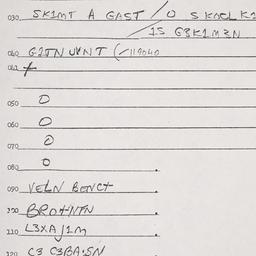 030 SK1MT A GAST / O SKACLK2
/ IS G3K1M3N
040 G2TN UVNT (/119040
042 +
050 O
060 O
070 O
080 O
090 VELN BENCT
100 BRO+NTN
110 L3XA/1M
120 C3 C3BA.SN